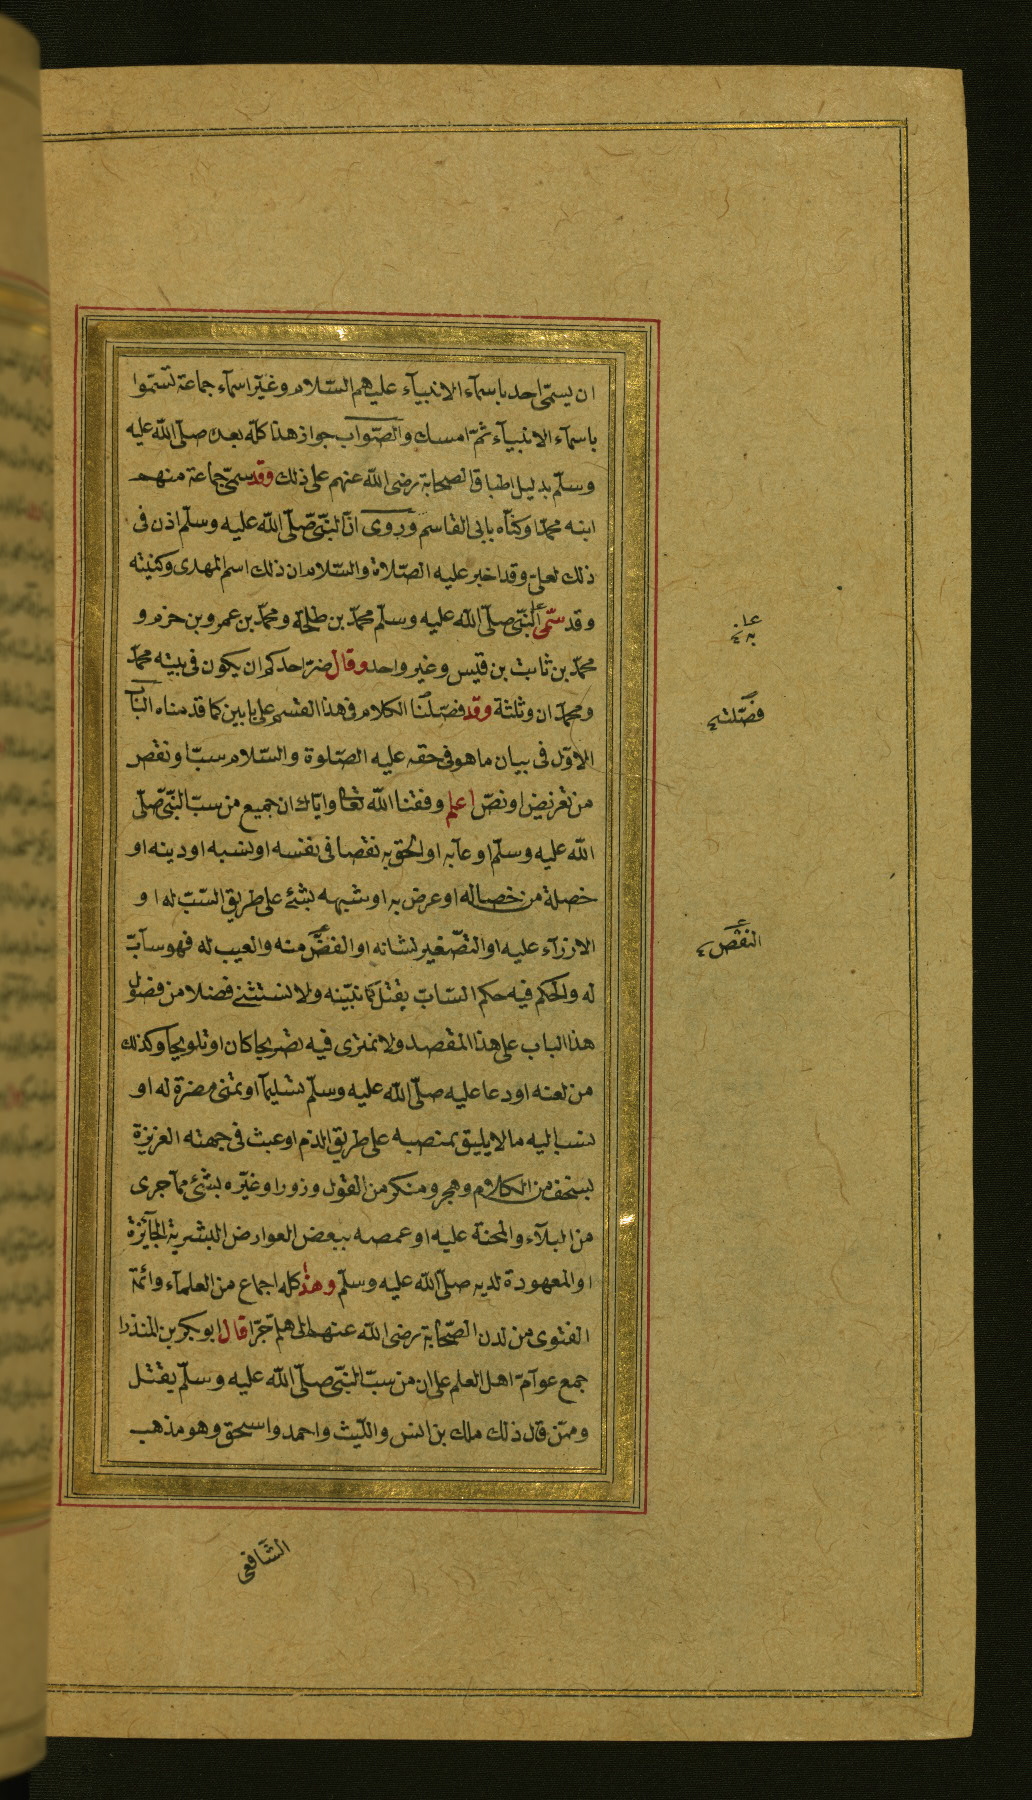 ان يسمّى احد باسمآء الانبيآء عليهم السّلام وغيّر اسمآء جماعة تسمّوا
باسمآء الانبيآء ثمّ امسك والصّواب جواز هذا كلّه بعده صلّى الله عليه
وسلّم بدليل اطباق الصحابة رضى الله عنهم على ذلك وقد سمّى جماعة منهم
ابنه محمّدا وكنّاه بابى القاسم وروى انّ النّبىّ صلّى الله عليه وسلّم اذن فى
ذلك لعلىّ وقد اخبر عليه الصّلاة والسّلام ان ذلك اسم المهدى وكنيته
وقد سمّى النّبىّ صلّى الله عليه وسلّم محمّد بن طلحة ومحمّد بن عمرو بن حزم و
محمّد بن ثابت بن قيس وغير واحد وقال ما ضرّ احدكم ان يكون فى بيته محمّد
ومحمّدان وثلثة وقد فصّلنا الكلام فى هذا القسم على بابين كما قدمناه الباب
الاوّل فى بيان ما هو فى حقه عليه الصّلوة والسّلام سبّ او نقص
من تعريض او نصّ اعلم وفقنا الله تعالى واياك ان جميع من سبّ النّبىّ صلّى
الله عليه وسلّم او عابه او الحق به نقصا فى نفسه او نسبه او دينه او
خصلة من خصاله او عرض به او شبهه بشئ على طريق السّبّ له او
الازرآء عليه او التصّغير لشانه او الغضّ منه والعيب له فهو سآبّ
له والحكم فيه حكم السّابّ يقتل كما نبيّنه ولا نستثنى فصلا من فصول
هذا الباب على هذا المقصد ولا نمترى فيه تصريحا كان او تلويحا وكذلك
من لعنه او دعا عليه صلّى الله عليه وسلّم تسليما او تمنى مضرة له او
نسب اليه ما لا يليق بمنصبه على طريق الذم او عبث فى جهته العزيزة
بسخف من الكلام وهجر ومنكر من القول وزور او غيّره بشئ ممّا جرى
من البلآء والمحنة عليه او غمصه ببعض العوارض البشرية الجآئزة
او المعهودة لديه صلّى الله عليه وسلّم وهذا كله اجماع من العلمآء وائمّة
الفتوى من لدن الصّحابة رضى الله عنهم الى هلم جرّا قال ابو بكر بن المنذر ا
جمع عوآمّ اهل العلم على ان من سبّ النّبىّ صلّى الله عليه وسلّم يقتل
وممّن قال ذلك ملك بن انس والليث واحمد واسحق وهو مذهب
الشّافعى
به
فصّلته
النقص